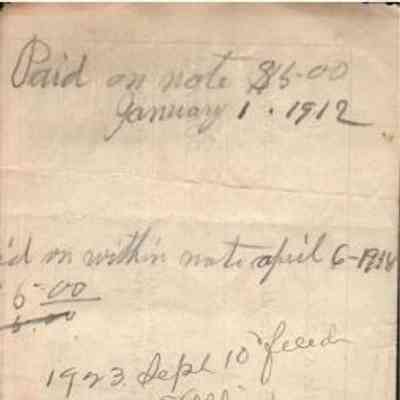 Paid on note $5-00
January 1 . 1912
id on within note april 6-191
6-00
6.00
1923. Sept 10